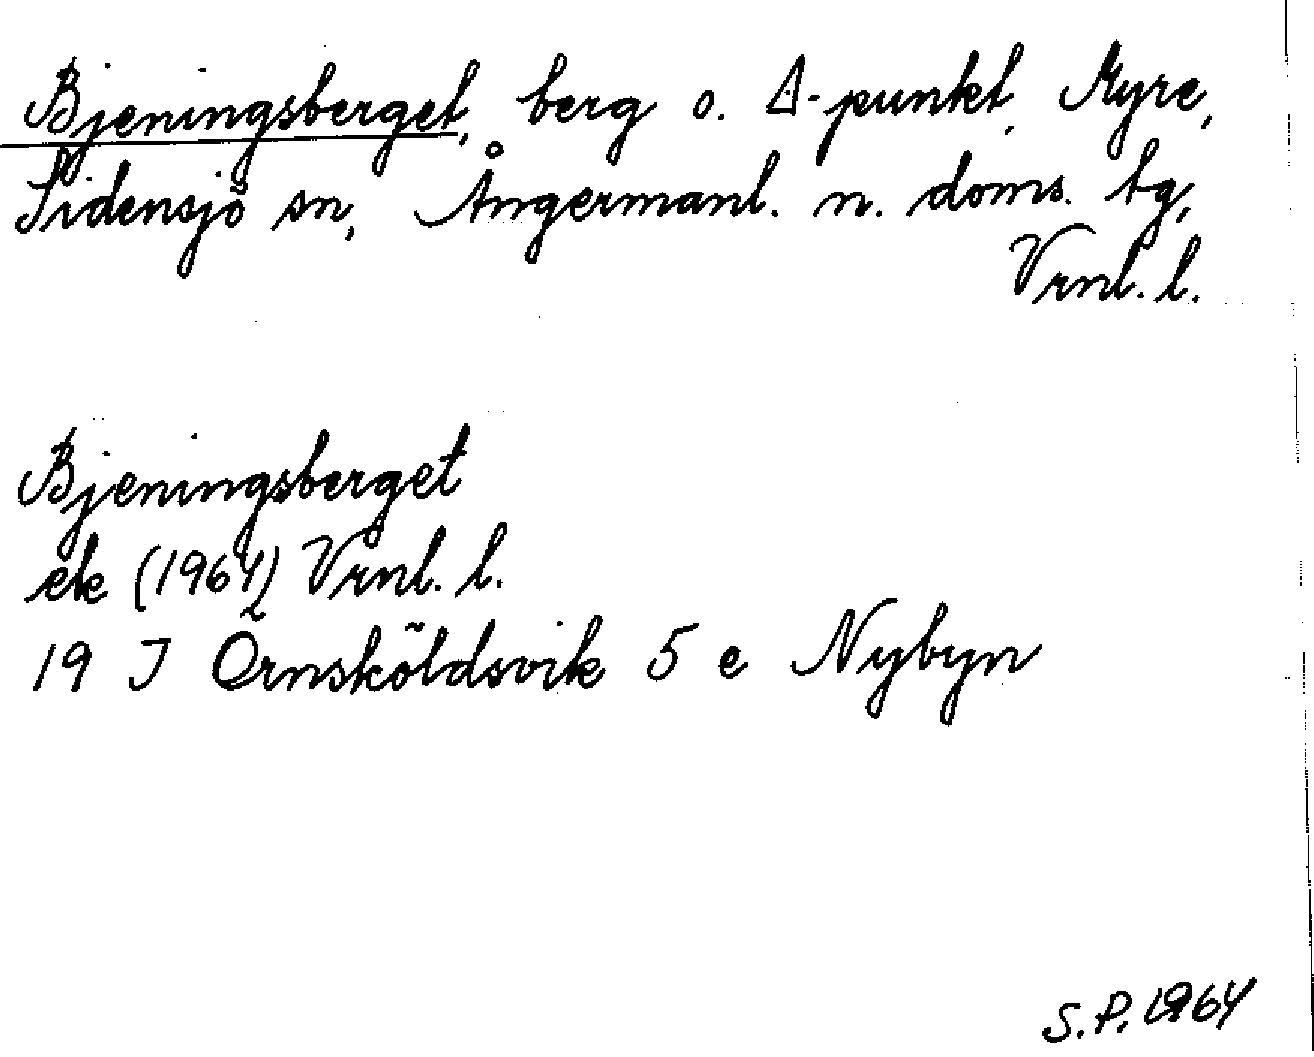 Bjeningsberget, berg o. Δ-punkt, Myre,
Sidensjö sn, Ångermanl. n. doms. tg,
Vrnl. l.
Bjeningsberget
ek (1961) Vrnl. l.
19 J Örnsköldsvik 5 e Nybyn
S.P. 1964